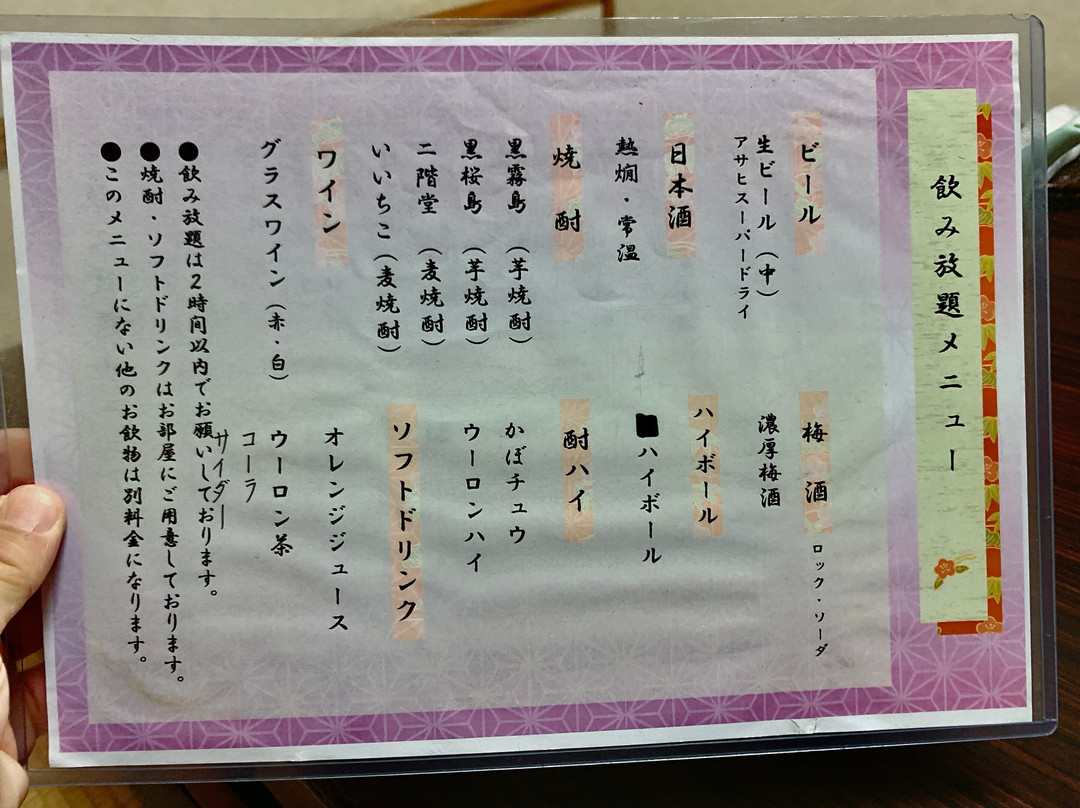 飲み放題メニュー
ビール
生ビール（中）
アサヒスーパードライ
日本酒
熱燗・常温
焼酎
黒霧島（芋焼酎）
黒桜島（芋焼酎）
二階堂（麦焼酎）
いいちこ（麦焼酎）
ワイン
グラスワイン（赤・白）
梅酒
ロック・ソーダ
濃厚梅酒
ハイボール
ハイボール
酎ハイ
かぼチュウ
ウーロンハイ
ソフトドリンク
オレンジジュース
ウーロン茶
コーラ
サイダー
●飲み放題は2時間以内でお願いしております。
●焼酎・ソフトドリンクはお部屋にご用意しております。
●このメニューにない他のお飲物は別料金になります。